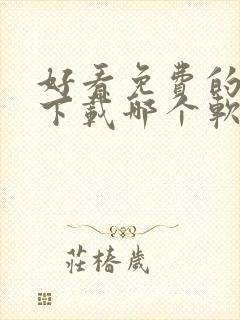 好看免费的
下载哪个软
莊椿歲